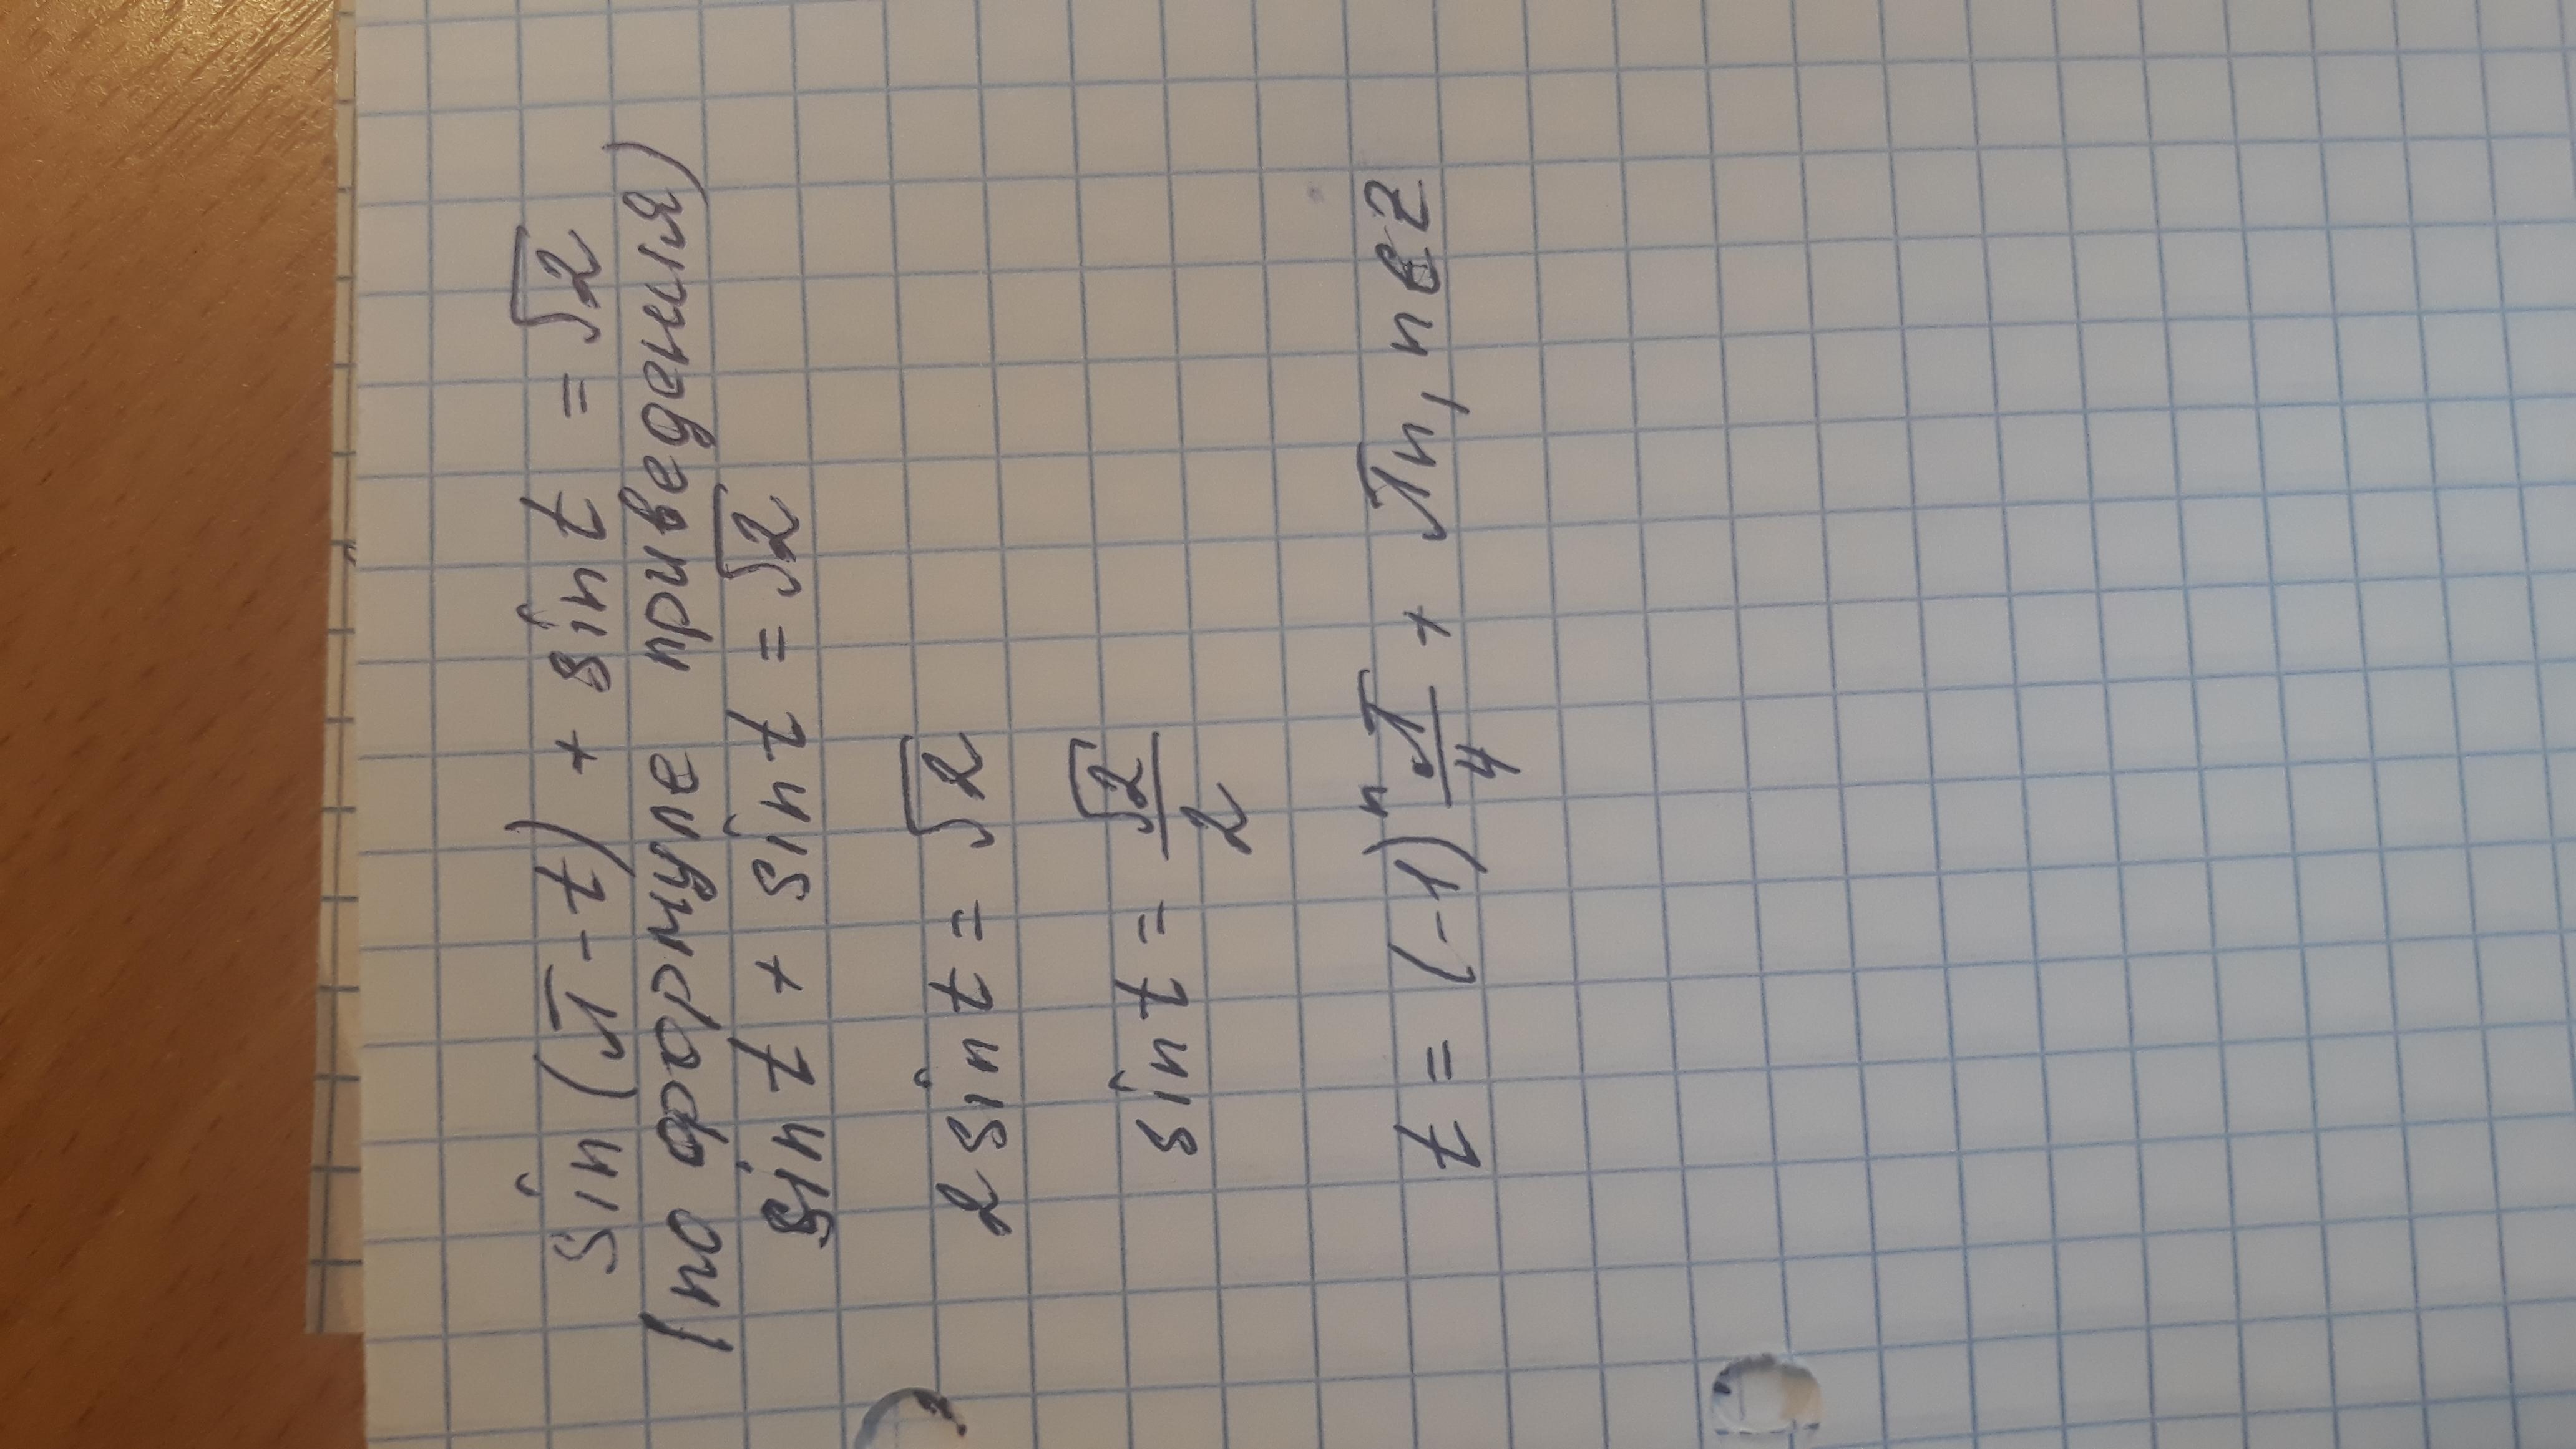 sin(π-t) + sin t = √2
(по формуле приведения)
sin t + sin t = √2
2 sin t = √2
sin t = √2/2
t = (-1)ⁿ π/4 + πn, n∈Z